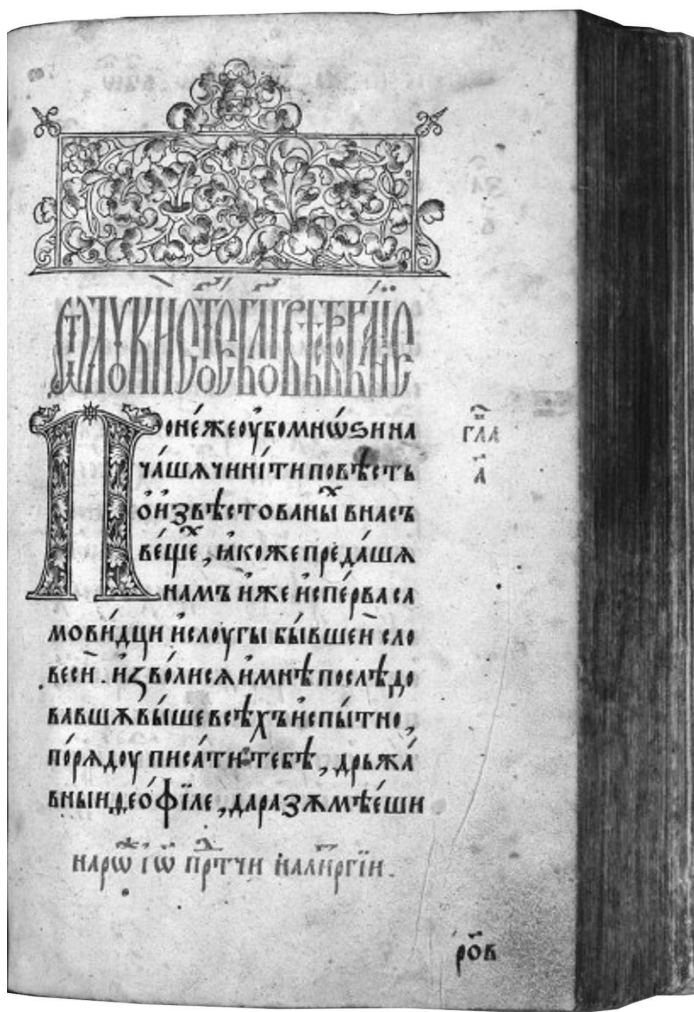 Ѿлꙋкистоевⷢ҇лїебл҃говѣствованїе
Поне́жеоу҆бомнѡѕина
ча́шѧчини́типовѣ́сть
ои҆звѣствованыⷯвнасъ
ве́щеⷯ, ꙗ҆́копреда́шѧ
намъ и҆́же и҆спе́рваса
мови́дци и҆слоугы бы́вшеи сло
веси . и҆зво́лисѧи҆мнѣ послѣдо
вавшѫвы́шевсѣ́хъи҆спы́тно ,
по́рѧдоу писа́титебѣ̀ , дръжа́
вныиѳео́фїле , даразѫмѣ́еши
гла
а҃
нарѡⷤ і҆ѡⷩ҇ прⷣтчи налитⷬ҇гїи .
ро́в